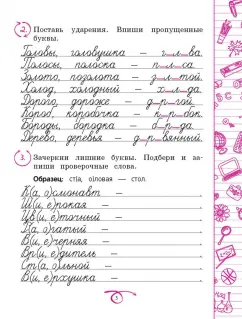 2. Поставь ударения. Впиши пропущенные
буквы.
Головы, головушка — г_л_ва.
Полосы, полоска — п_л_са.
Золото, позолота — з_л_той.
Холод, холодный — х_л_да.
Дорого, дороже — д_р_гой.
Короб, коробочка — к_р_бок.
Бороды, бородка — б_р_да.
Дерево, деревья — д_р_вянный.
3. Зачеркни лишние буквы. Подбери и за-
пиши проверочные слова.
Образец: ст(а, о)ловая — стол.
К(а, о)смонавт —
Ш(и, е)рокая —
Цв(и, е)точный —
П(а, о)ратый —
В(и, е)черняя —
Вр(и, е)дитель —
Ст(а, о)льной —
В(и, е)рхушка —
5